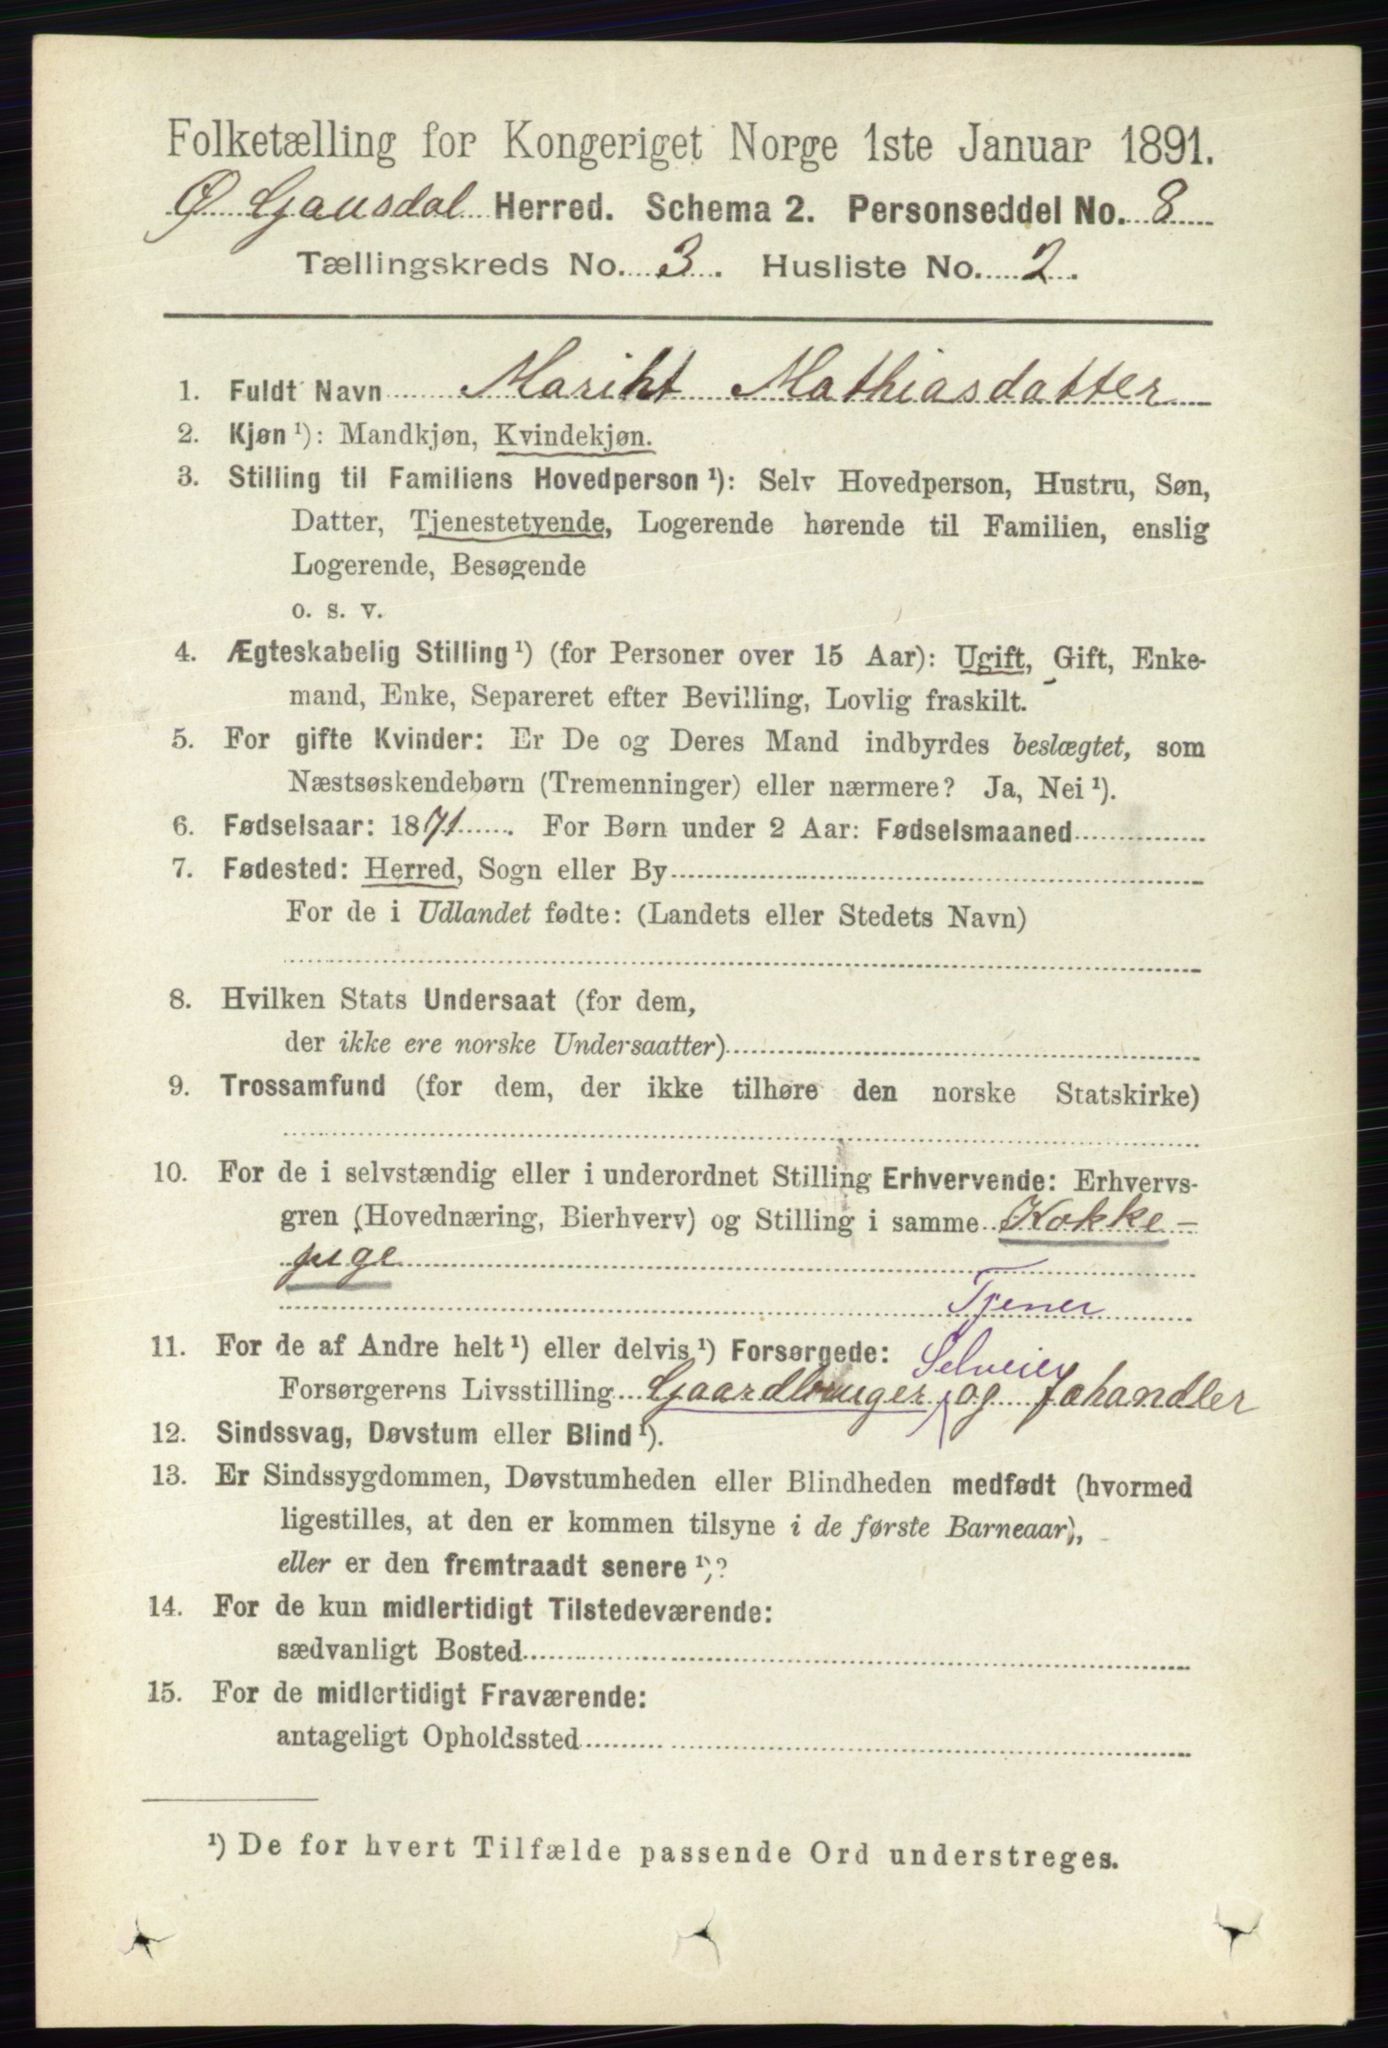 Folketælling for Kongeriget Norge 1ste Januar 1891.
Ø Gausdal Herred. Schema 2. Personseddel No. 8
Tællingskreds No. 3. Husliste No. 2.
1. Fuldt Navn Mariht Mathiasdatter
2. Kjøn ¹): Mandkjøn, Kvindekjøn.
3. Stilling til Familiens Hovedperson ¹): Selv Hovedperson, Hustru, Søn,
Datter, Tjenestetyende, Logerende hørende til Familien, enslig
Logerende, Besøgende
o. s. v.
4. Ægteskabelig Stilling ¹) (for Personer over 15 Aar): Ugift, Gift, Enke-
mand, Enke, Separeret efter Bevilling, Lovlig fraskilt.
5. For gifte Kvinder: Er De og Deres Mand indbyrdes beslægtet, som
Næstsøskendebørn (Tremenninger) eller nærmere? Ja, Nei ¹).
6. Fødselsaar: 1871. For Børn under 2 Aar: Fødselsmaaned
7. Fødested: Herred, Sogn eller By
For de i Udlandet fødte: (Landets eller Stedets Navn)
8. Hvilken Stats Undersaat (for dem,
der ikke ere norske Undersaatter)
9. Trossamfund (for dem, der ikke tilhøre den norske Statskirke)
10. For de i selvstændig eller i underordnet Stilling Erhvervende: Erhvervs-
gren (Hovednæring, Bierhverv) og Stilling i samme Kokke-
pige
Tjener
11. For de af Andre helt ¹) eller delvis ¹) Forsørgede:
Selveier
Forsørgerens Livsstilling Gaardbruger og Fæhandler
12. Sindssvag, Døvstum eller Blind ¹).
13. Er Sindssygdommen, Døvstumheden eller Blindheden medfødt (hvormed
ligestilles, at den er kommen tilsyne i de første Barneaar),
eller er den fremtraadt senere ¹)?
14. For de kun midlertidigt Tilstedeværende:
sædvanligt Bosted
15. For de midlertidigt Fraværende:
antageligt Opholdssted
¹) De for hvert Tilfælde passende Ord understreges.